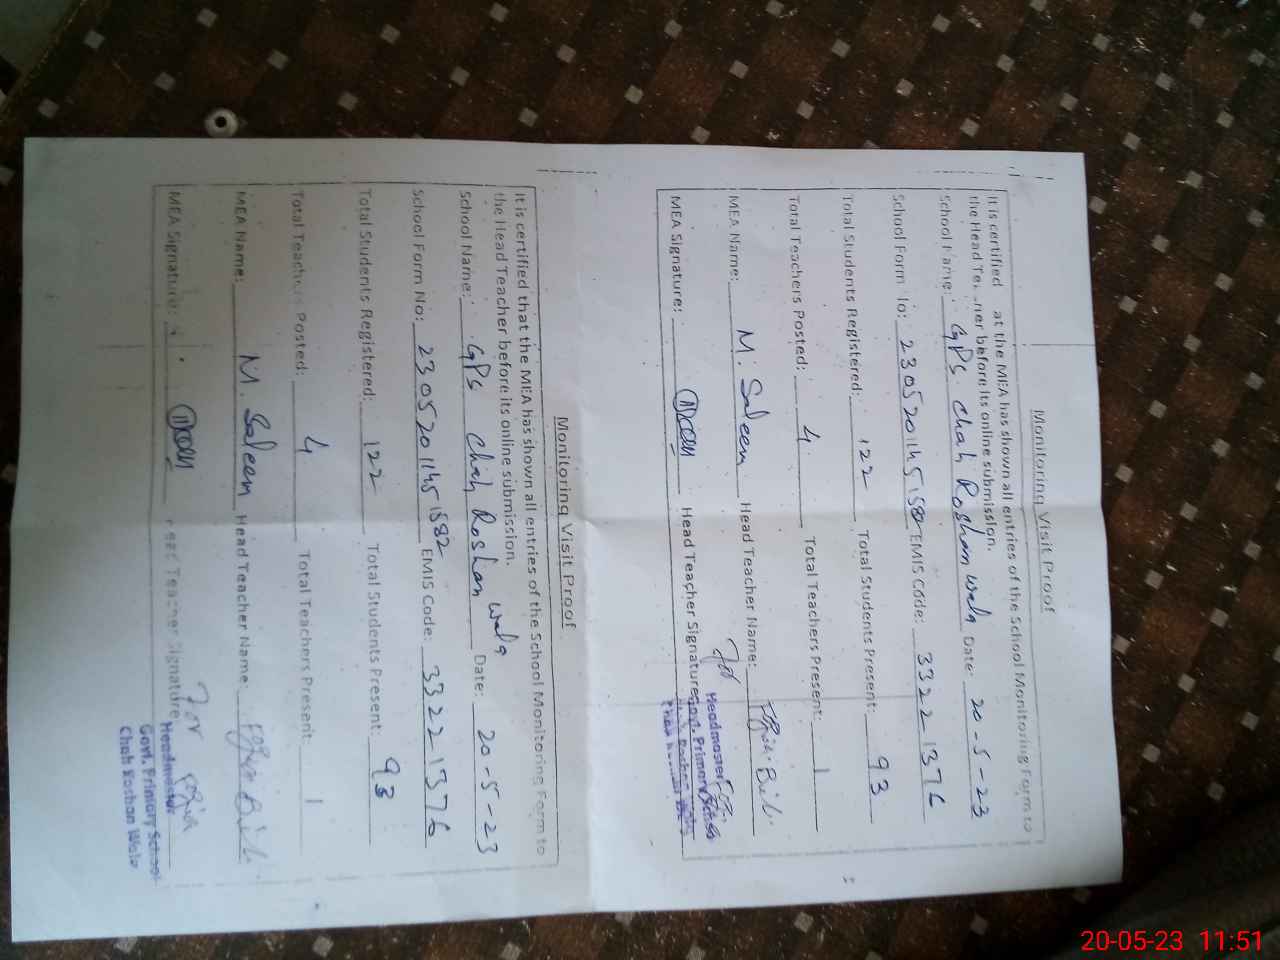 Monitoring Visit Proof
It is certified at the MEA has shown all entries of the School Monitoring Form to
the Head Te ner before its online submission.
School Name: GPS chah Roshan wala Date: 20-5-23
School Form No: 23052011451582 EMIS Code: 33221376
Total Students Registered: 122 Total Students Present: 93
Total Teachers Posted: 4 Total Teachers Present: 1
MEA Name: M. Saleem Head Teacher Name:
MEA Signature: Head Teacher Signature: For
Headmaster
Govt. Primary School
Chah Roshan Wala
Monitoring Visit Proof
It is certified that the MEA has shown all entries of the School Monitoring Form to
the Head Teacher before its online submission.
School Name: GPS chah Roshan wala Date: 20-5-23
School Form No: 23052011451582 EMIS Code: 33221376
Total Students Registered: 122 Total Students Present: 93
Total Teachers Posted: 4 Total Teachers Present: 1
MEA Name: M. Saleem Head Teacher Name:
MEA Signature: Head Teacher Signature: For
Headmaster
Govt. Primary School
Chah Roshan Wala
20-05-23 11:51